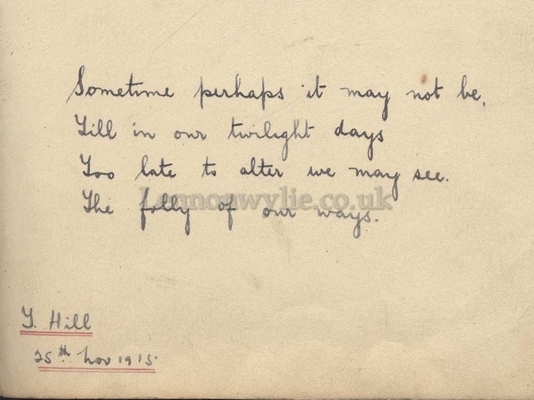 Sometime perhaps it may not be,
Till in our twilight days
Too late to alter we may see.
Lennonwylie.co.uk
The folly of our ways.
T. Hill
25th Nov 1915